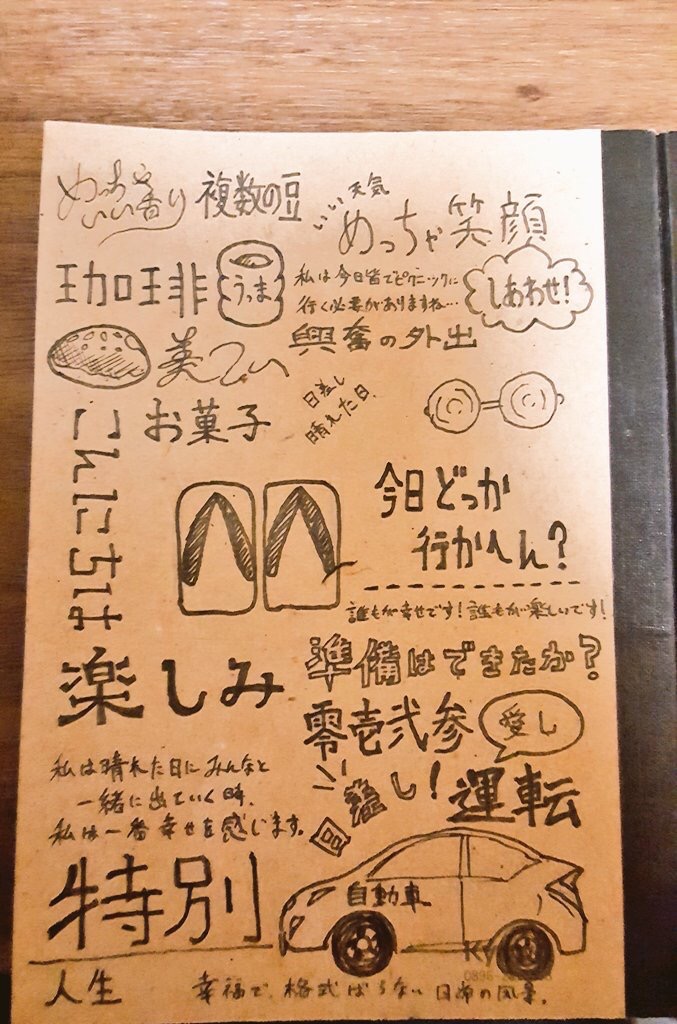 めっちゃ
いい香り
複数の豆
いい天気
めっちゃ笑顔
珈琲
うっま
私は今日皆でピクニックに
行く必要がありますね…
しあわせ!
興奮の外出
美
お菓子
日差し
晴れた日
こんにちは
今日どっか
行かへん?
誰もが幸せです!誰もが楽しいです!
楽しみ
準備はできたか?
零壱弐参
愛し
日差し!
運転
私は晴れた日にみんなと
一緒に出ていく時、
私は一番幸せを感じます。
特別
自動車
人生
幸福で、格式ばらない日常の風景。